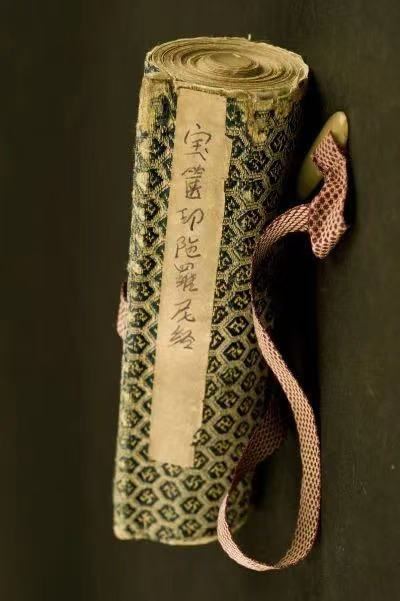 宝篋印陀羅尼経